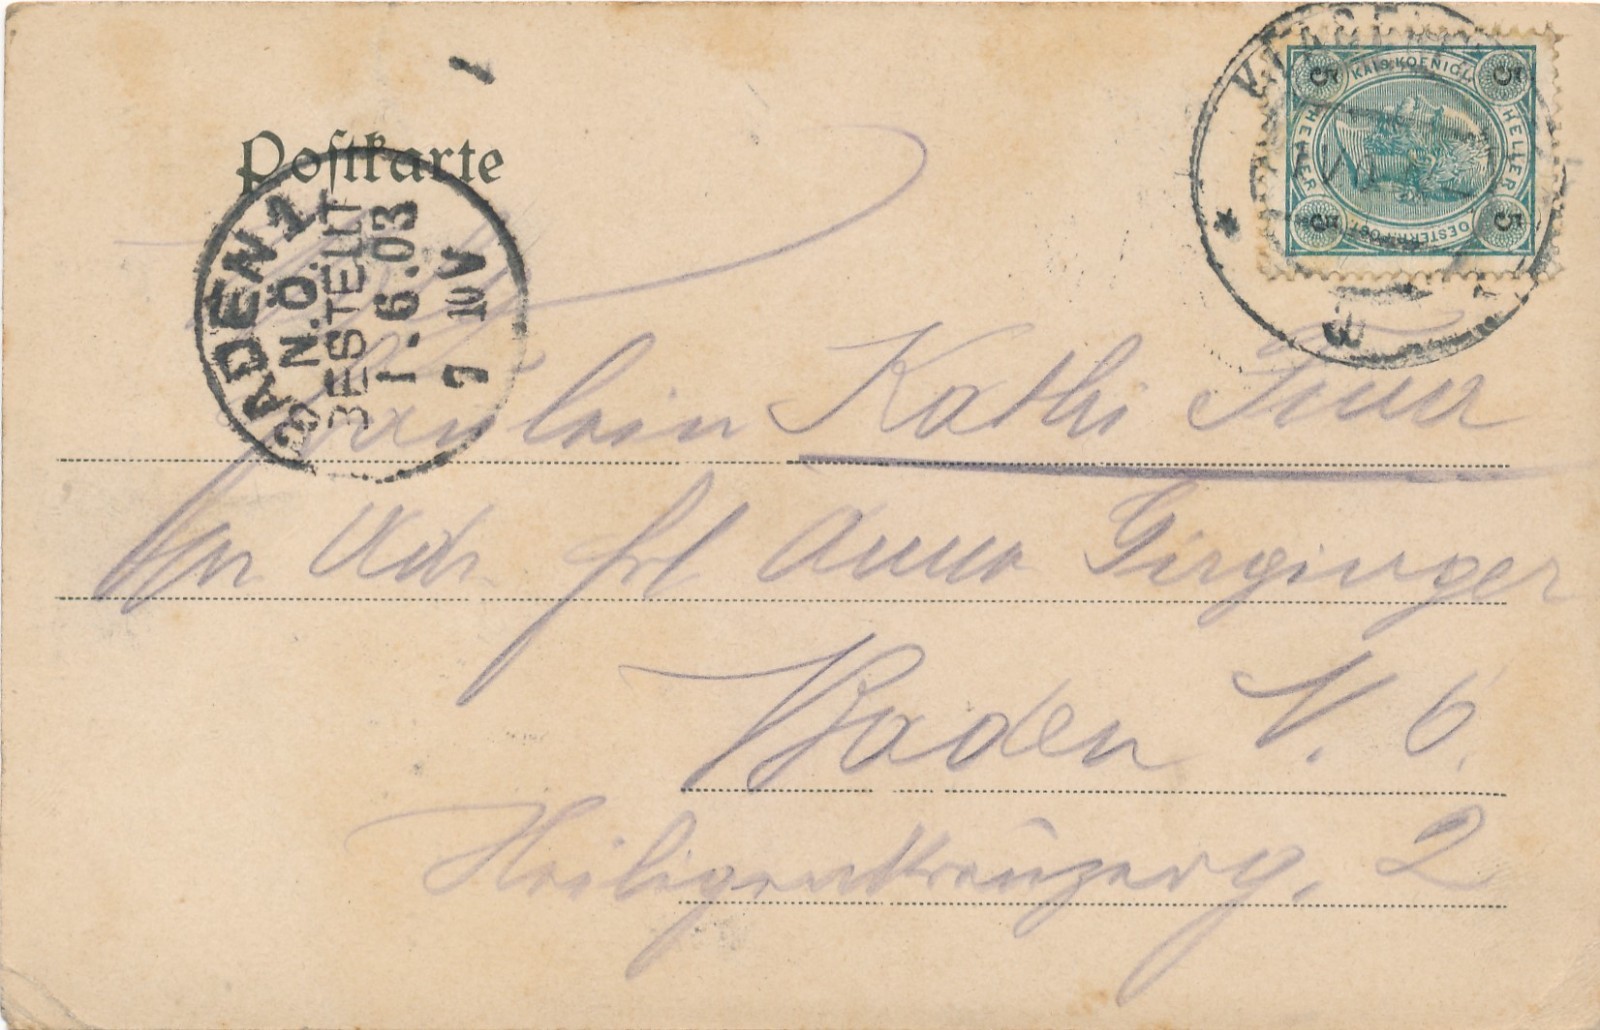 Postkarte
BADEN 1
N.Ö.
BESTELLT
1.6.03
7 10 V
KAIS. KOENIGL.
OESTERR. POST.
HELLER HELLER
5 5 5 5
Fräulein Kathi
pr Adr. Frl Anna Girginger
Baden N. Ö.
Heiligenkreuzerg. 2